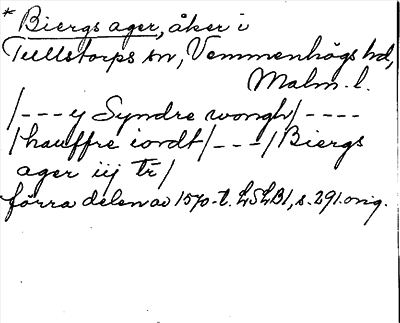 * Biergs ager, åker i
Tullstorps sn, Vemmenhögs hd,
Malm. l.
/---y Syndre wongh/----
/hauffre iordt/---/Biergs
ager iij tr/
förra delen av 1570-t. LSLB1, s. 291. orig.